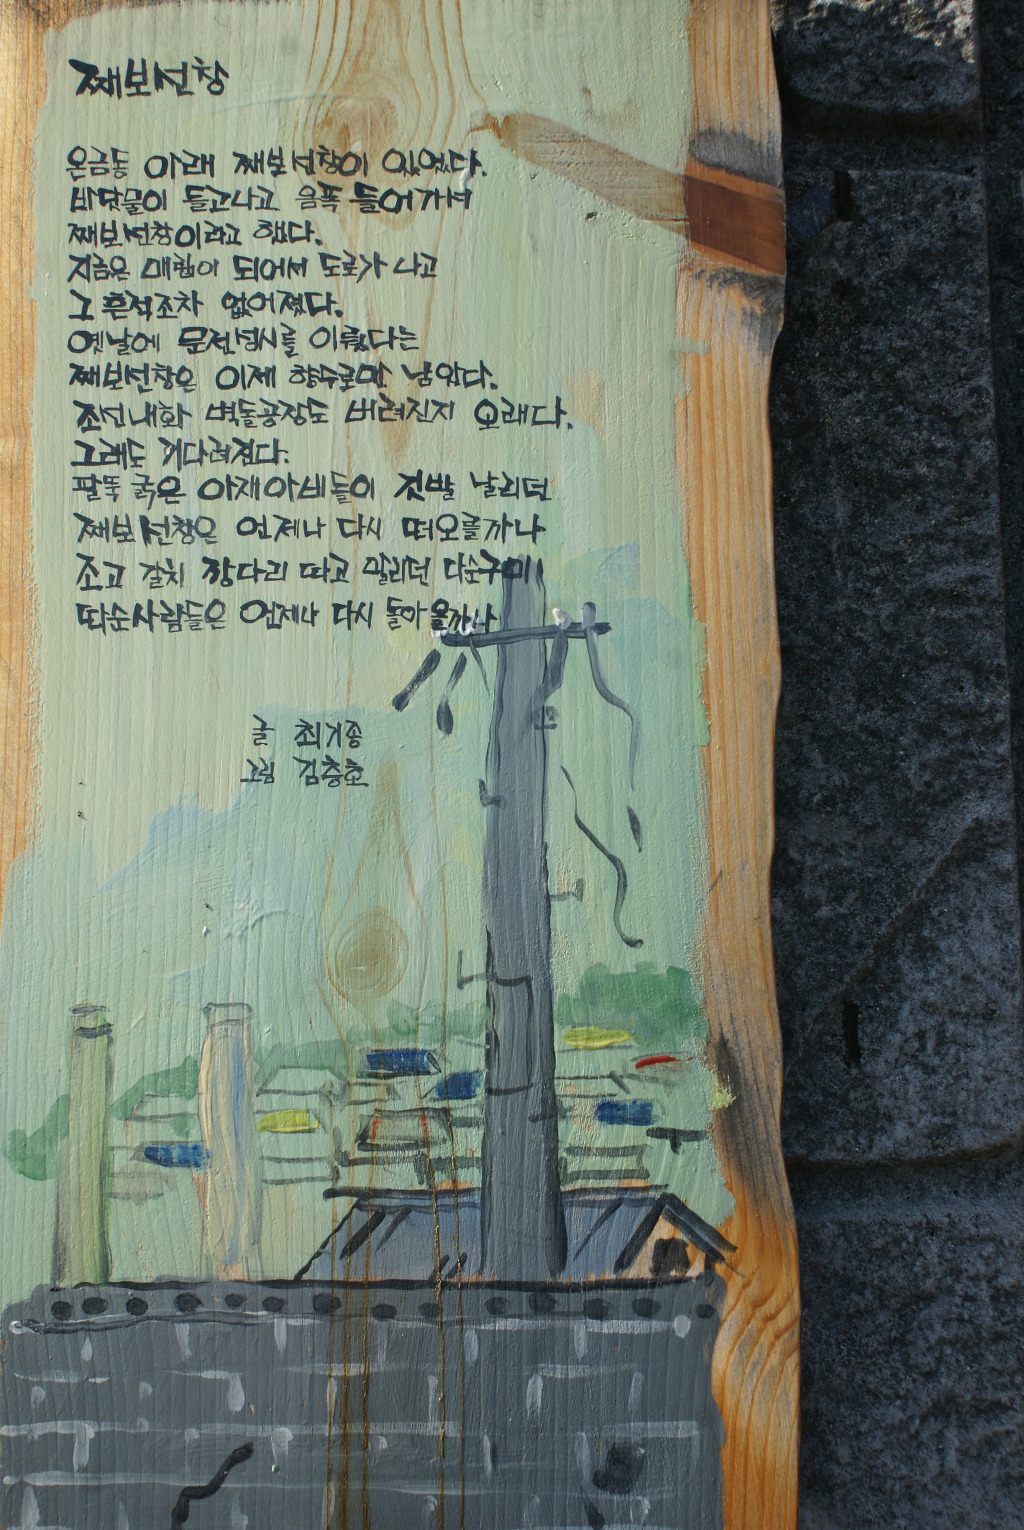 째보선창
온금동 아래 째보선창이 있었다.
바닷물이 들고나고 움푹 들어가서
째보선창이라고 했다.
지금은 매립이 되어서 도로가 나고
그 흔적조차 없어졌다.
옛날에 문전성시를 이뤘다는
째보선창은 이제 향수로만 남았다.
조선내화 벽돌공장도 버려진지 오래다.
그래도 기다려진다.
팔뚝 굵은 아재아베들이 깃발 날리던
째보선창은 언제나 다시 떠오를까나
조고 갈치 장다리 따고 말리던 다순구미
따순사람들은 언제나 다시 돌아올까나
글 최기종
그림 김충호